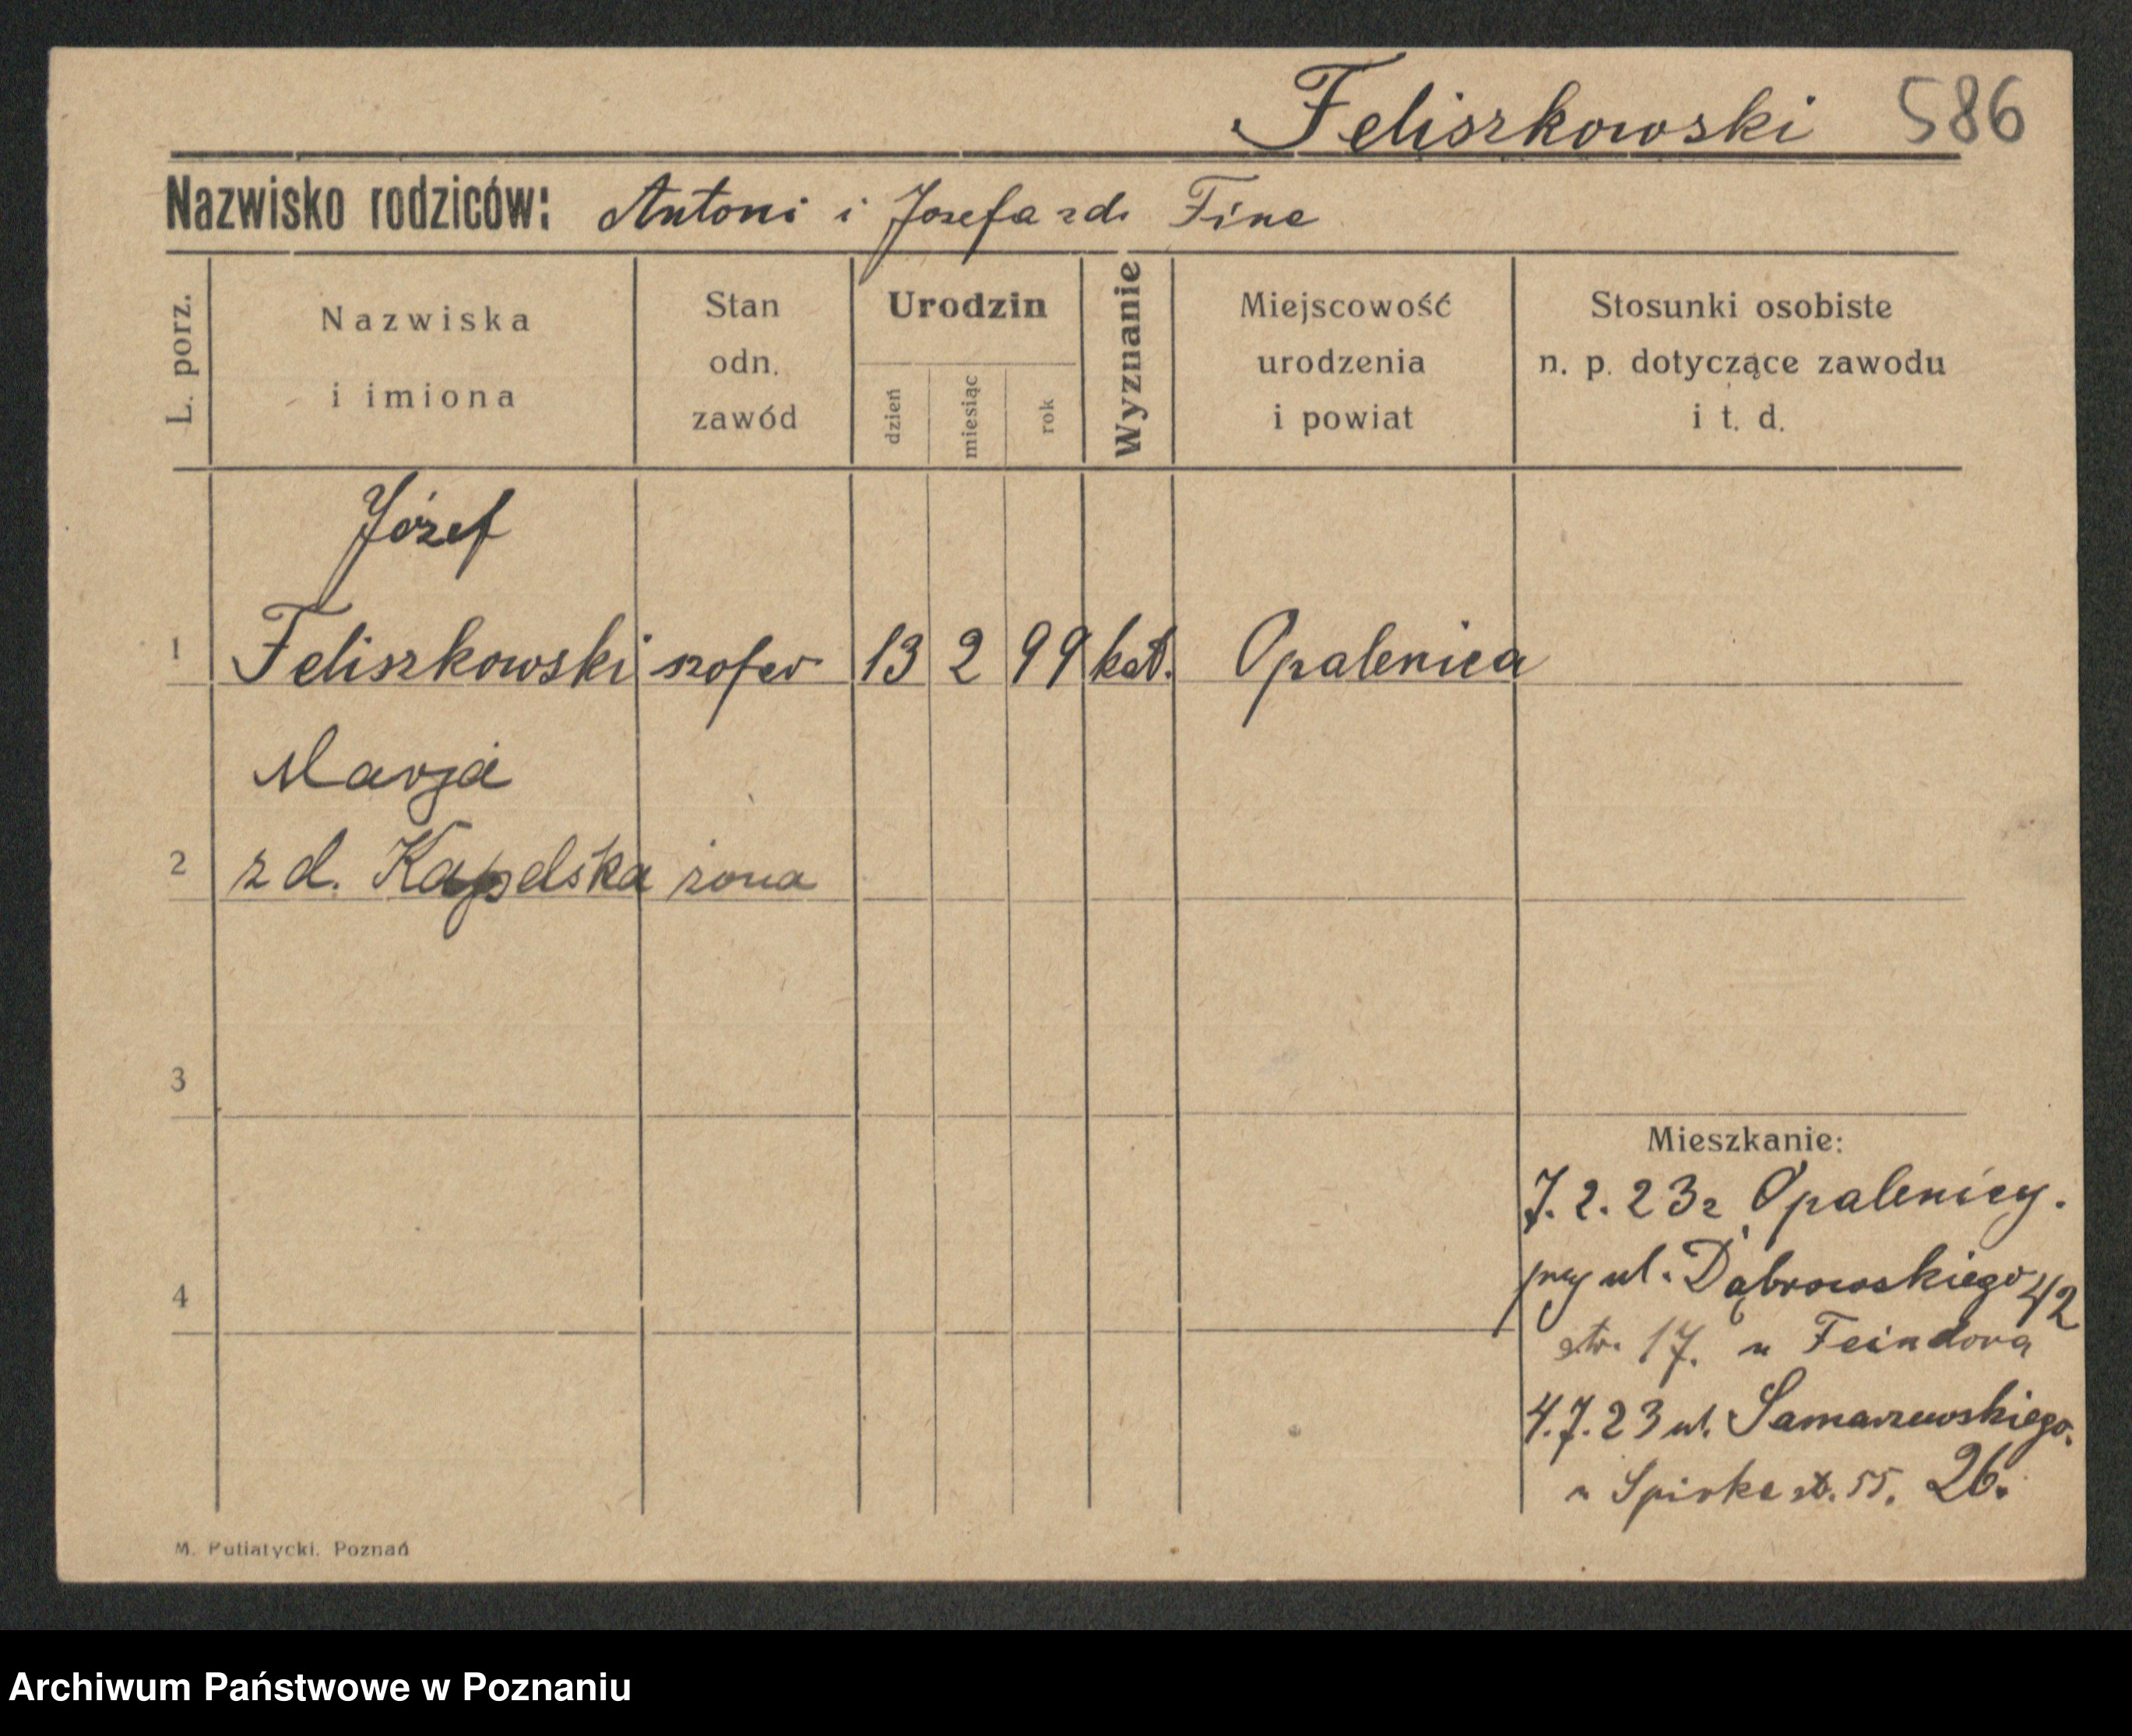 Feliszkowski 586
Nazwisko rodziców: Antoni i Josefa zd. Fine
L. porz.
Nazwiska
i imiona
Stan
odn.
zawód
Urodzin
dzień
miesiąc
rok
Wyznanie
Miejscowość
urodzenia
i powiat
Stosunki osobiste
n. p. dotyczące zawodu
i t. d.
Józef
1 Feliszkowski szofer 13 2 99 kat. Opalenica
Marja
2 z d. Kapelska żona
3
Mieszkanie:
7.2.23 z Opalenicy.
przy ul. Dąbrowskiego 42
4
str. 17. u Feindora
4.7.23 ul. Samarzewskiego
u Spirke st. 55. 26.
M. Putiatycki. Poznań
Archiwum Państwowe w Poznaniu